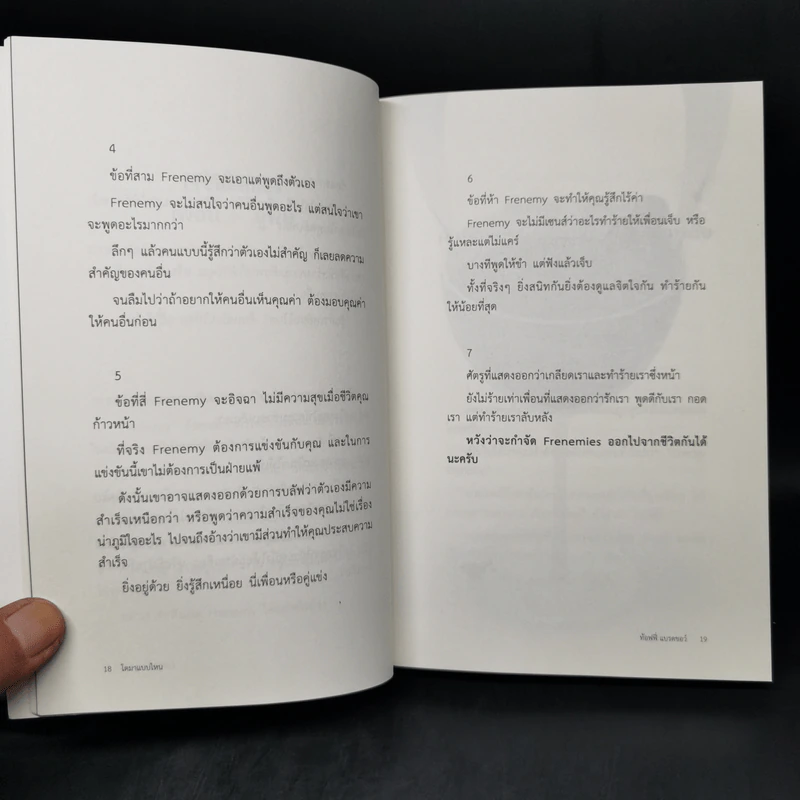 4
ข้อที่สาม Frenemy จะเอาแต่พูดถึงตัวเอง
Frenemy จะไม่สนใจว่าคนอื่นพูดอะไร แต่สนใจว่าเขา
จะพูดอะไรมากกว่า
ลึกๆ แล้วคนแบบนี้รู้สึกว่าตัวเองไม่สำคัญ ก็เลยลดความ
สำคัญของคนอื่น
จนลืมไปว่าถ้าอยากให้คนอื่นเห็นคุณค่า ต้องมอบคุณค่า
ให้คนอื่นก่อน
5
ข้อที่สี่ Frenemy จะอิจฉา ไม่มีความสุขเมื่อชีวิตคุณ
ก้าวหน้า
ที่จริง Frenemy ต้องการแข่งขันกับคุณ และในการ
แข่งขันนี้เขาไม่ต้องการเป็นฝ่ายแพ้
ดังนั้นเขาอาจแสดงออกด้วยการบลัฟว่าตัวเองมีความ
สำเร็จเหนือกว่า หรือพูดว่าความสำเร็จของคุณไม่ใช่เรื่อง
น่าภูมิใจอะไร ไปจนถึงอ้างว่าเขามีส่วนทำให้คุณประสบความ
สำเร็จ
ยิ่งอยู่ด้วย ยิ่งรู้สึกเหนื่อย นี่เพื่อนหรือคู่แข่ง
18 โตมาแบบไหน
6
ข้อที่ห้า Frenemy จะทำให้คุณรู้สึกไร้ค่า
Frenemy จะไม่มีเซนส์ว่าอะไรทำร้ายให้เพื่อนเจ็บ หรือ
รู้แหละแต่ไม่แคร์
บางทีพูดให้ขำ แต่ฟังแล้วเจ็บ
ทั้งที่จริงๆ ยิ่งสนิทกันยิ่งต้องดูแลจิตใจกัน ทำร้ายกัน
ให้น้อยที่สุด
7
ศัตรูที่แสดงออกว่าเกลียดเราและทำร้ายเราซึ่งหน้า
ยังไม่ร้ายเท่าเพื่อนที่แสดงออกว่ารักเรา พูดดีกับเรา กอด
เรา แต่ทำร้ายเราลับหลัง
หวังว่าจะกำจัด Frenemies ออกไปจากชีวิตกันได้
นะครับ
ท้อฟฟี่ แบรดชอว์ 19